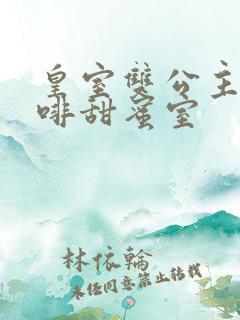 皇室雙公主
啡甜蜜室
林依輪
未經同意禁止轉載